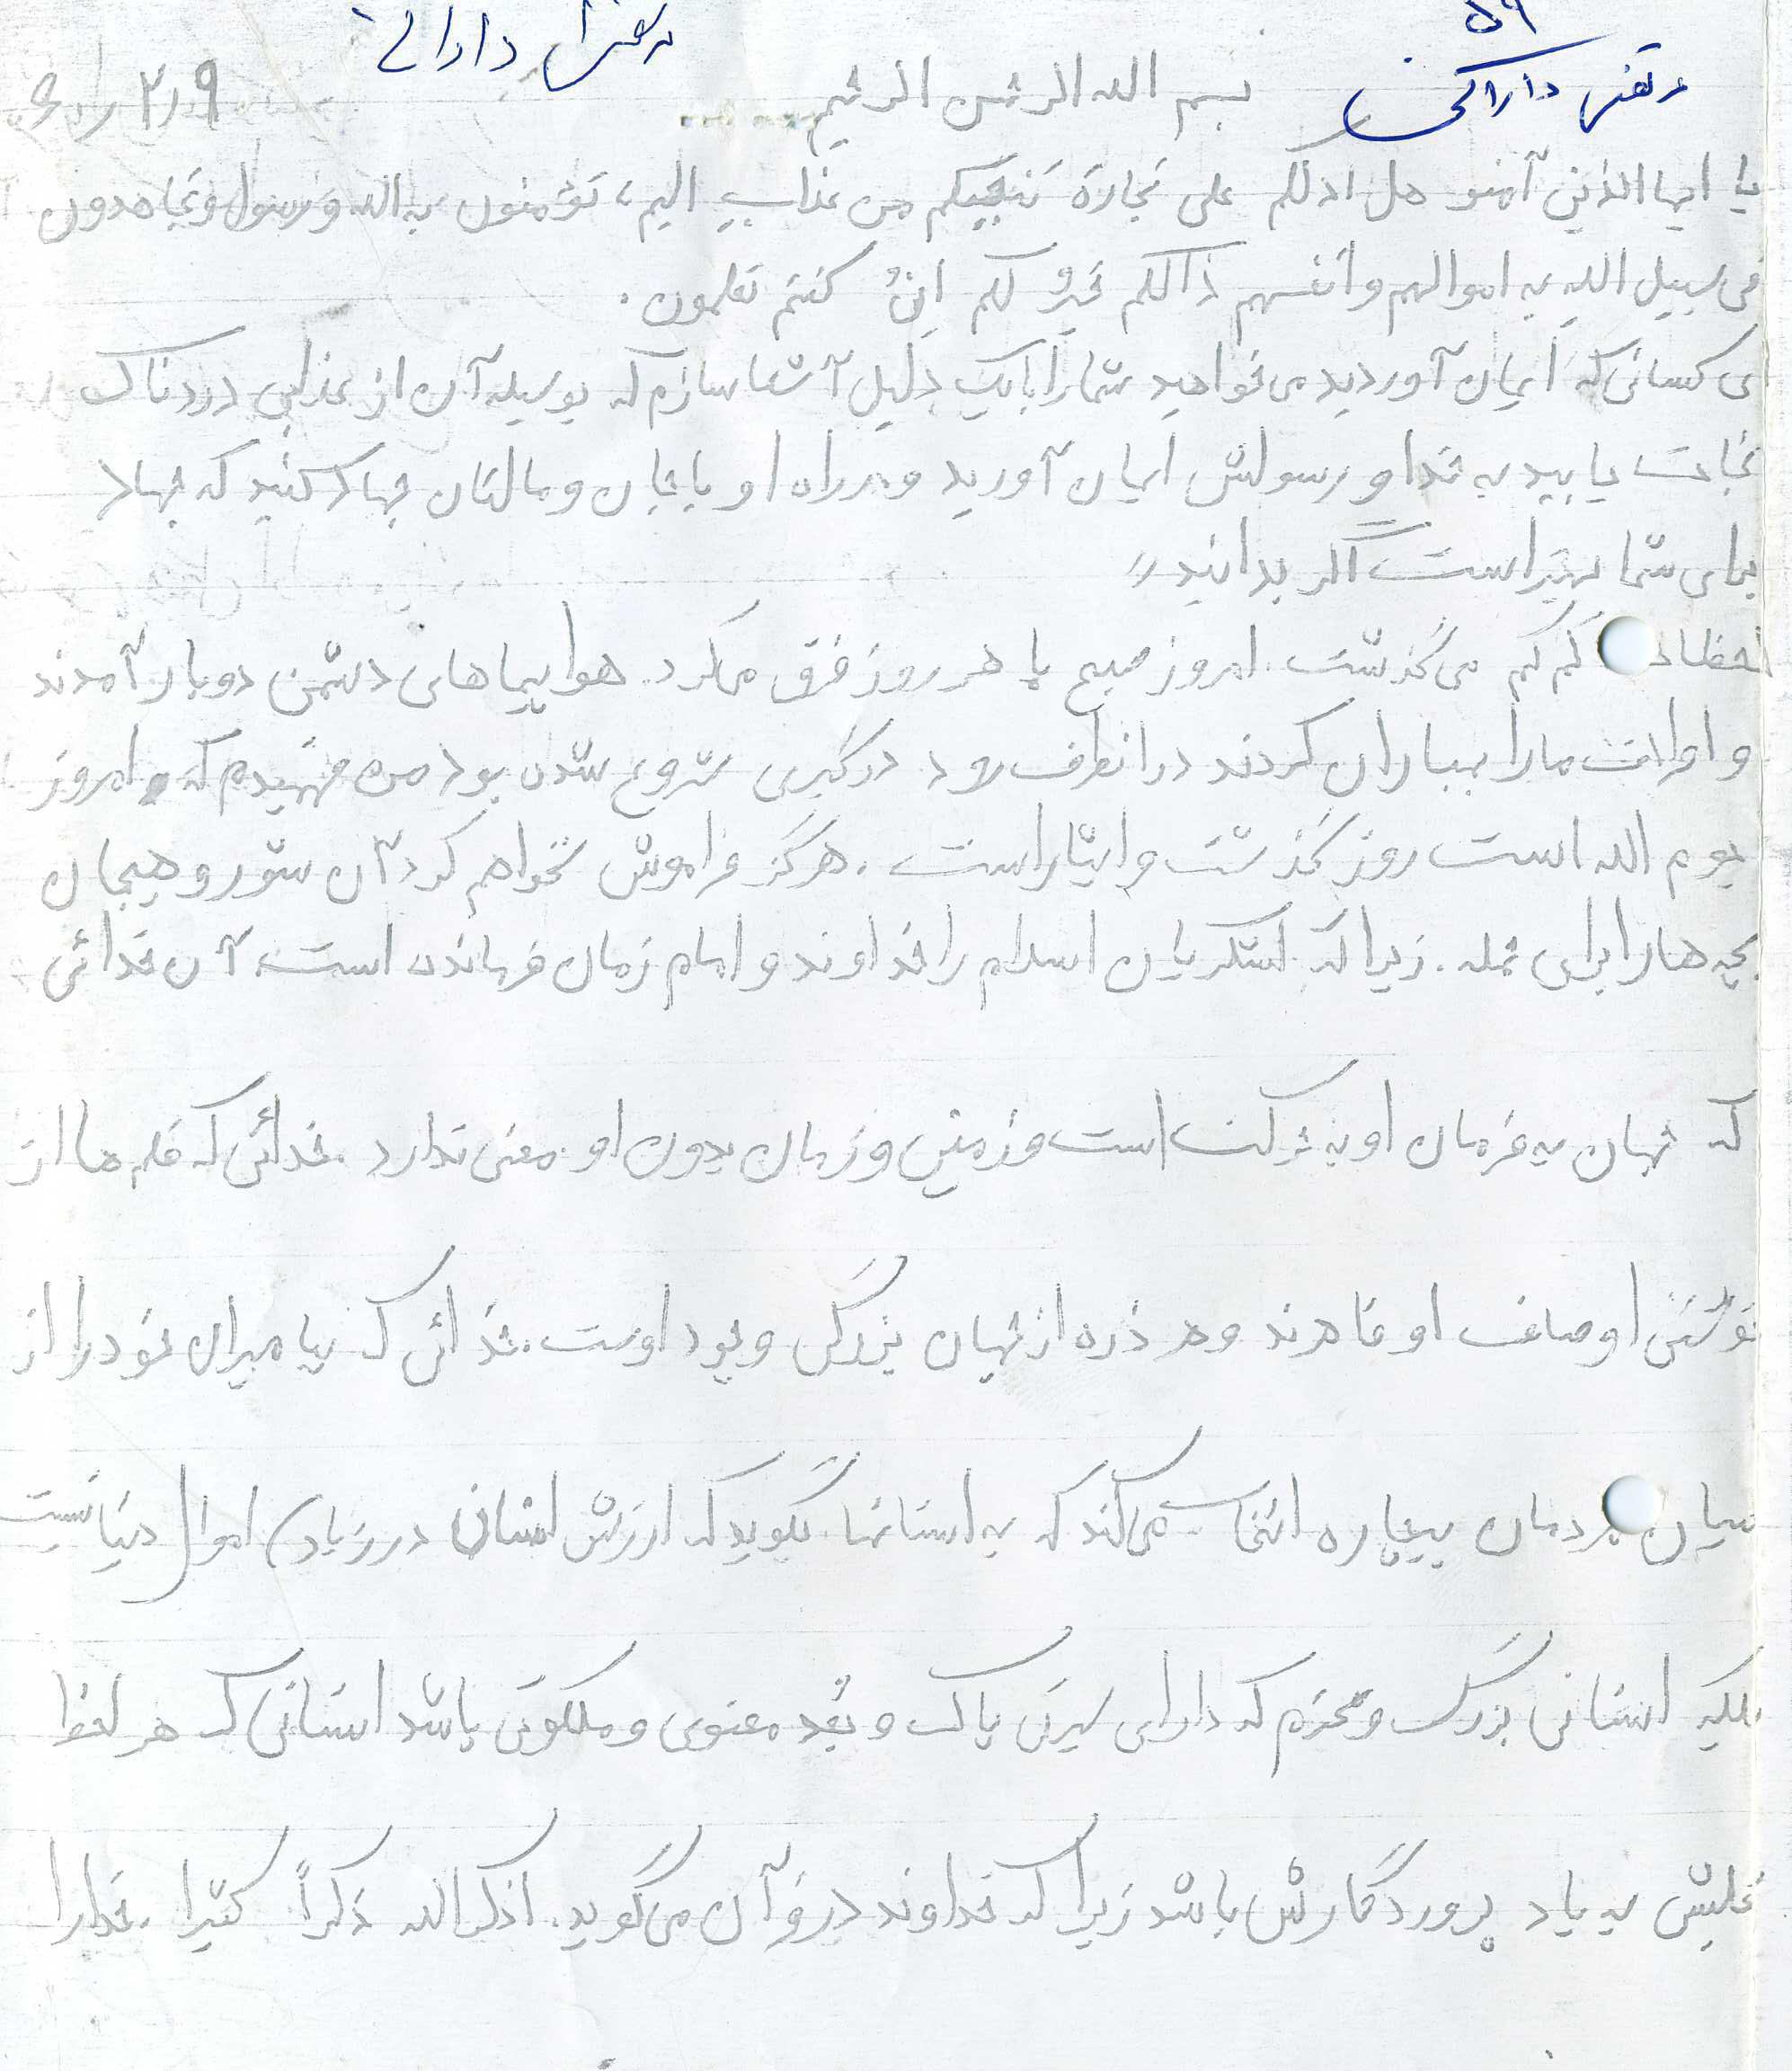 ۵۹
مرتضی دارائی
بسم الله الرحمن الرحیم
یا ایها الذین آمنو هل ادلکم علی تجارة تنجیکم من عذاب الیم، تؤمنون به الله و رسول و تجاهدون
فی سبیل الله به اموالهم و انفسهم ذالکم خیرٌ لکم اِنْ کنتم تعلمون.
ی کسانی که ایمان آوردید می خواهید شما را با یک دلیل آشنا سازم که بوسیله آن از عذابی دردناک
نجات یابید به خدا و رسولش ایمان آورید و در راه او با جان و مالتان جهاد کنید که جهاد
برای شما بهتر است اگر بدانید»
لحظات کم کم می گذشت. امروز صبح با هر روز فرق میکرد. هواپیماهای دشمن دوبار آمدند
و اطراف ما را بمباران کردند در انطرف رود درگیری شروع شده بود من فهمیدم که امروز
یوم الله است روز گذشت و ایثار است. هرگز فراموش نخواهم کرد آن شور و هیجان
بچه ها را برای حمله. زیرا که لشکریان اسلام را خداوند و امام زمان فرمانده است، آن خدائی
که جهان به فرمان او به حرکت است و زمین و زمان بدون او معنی ندارد. خدائی که قلم ها از
نوشتن اوصاف او قاصرند و هر ذره از جهان بزرگی وجود اوست. خدائی که پیامبران خود را از
میان مردمان بیچاره انتخاب می کند که به انسانها بگوید که ارزش انسان در زیادی اموال دنیا نیست
بلکه انسانی بزرگ و محترم که دارای سیرتی پاک و بُعد معنوی و ملکوتی باشد انسانی که هر لحظه
قلبش به یاد پروردگارش باشد زیرا که خداوند در قرآن می گوید. اذکر الله ذکراً کثیرا. خدا را